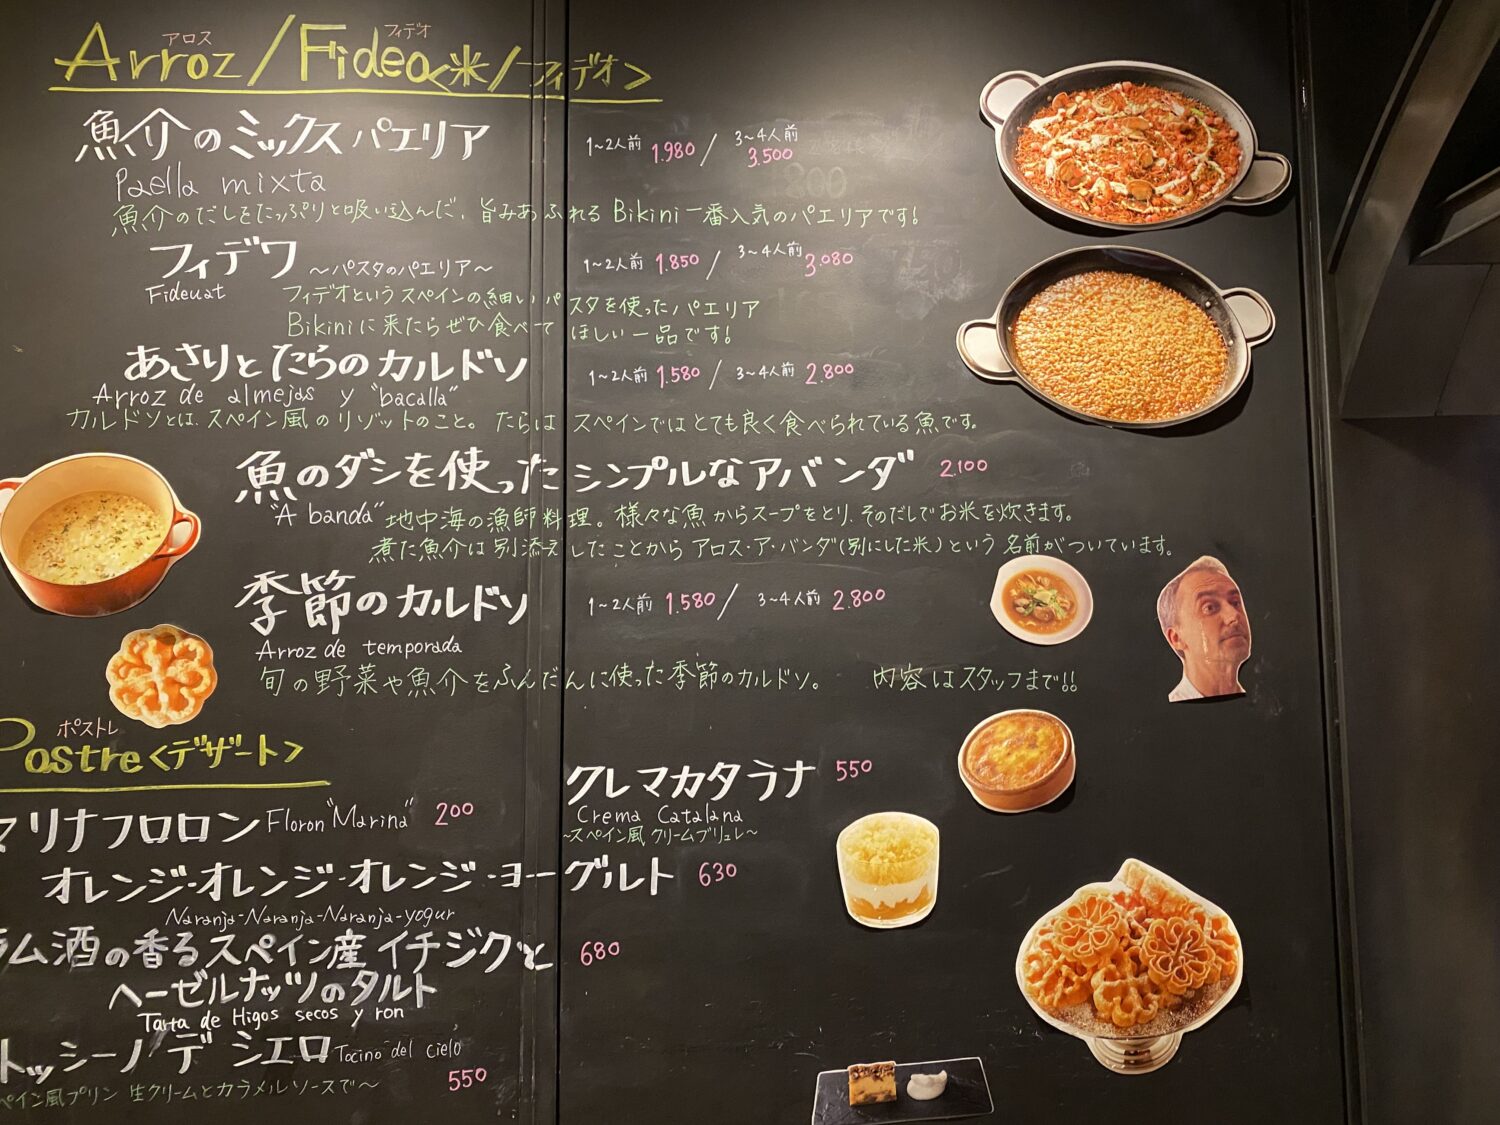 アロス フィデオ
Arroz/Fideo<米/フィデオ>
魚介のミックスパエリア 1~2人前 1.980 / 3~4人前 3.500
Paella mixta
魚介のだしをたっぷりと吸い込んだ、旨みあふれるBikini一番人気のパエリアです!
フィデワ ~パスタのパエリア~ 1~2人前 1.850 / 3~4人前 3.080
Fideuat フィデオというスペインの細いパスタを使ったパエリア
Bikiniに来たらぜひ食べてほしい一品です!
あさりとたらのカルドソ 1~2人前 1.580 / 3~4人前 2.800
Arroz de almejas y "bacalla"
カルドソとは、スペイン風のリゾットのこと。たらはスペインではとても良く食べられている魚です。
魚のダシを使ったシンプルなアバンダ 2.100
"A banda" 地中海の漁師料理。様々な魚からスープをとり、そのだしでお米を炊きます。
煮た魚介は別添えしたことからアロス・ア・バンダ(別にした米)という名前がついています。
季節のカルドソ 1~2人前 1.580 / 3~4人前 2.800
Arroz de temporada
旬の野菜や魚介をふんだんに使った季節のカルドソ。 内容はスタッフまで!!
ポストレ
Postre<デザート>
マリナフロロン Floron "Marina" 200
クレマカタラナ 550
Crema Catalana
~スペイン風クリームブリュレ~
オレンジ-オレンジ-オレンジ-ヨーグルト 630
Naranja-Naranja-Naranja-yogur
ラム酒の香るスペイン産イチジクと 680
ヘーゼルナッツのタルト
Tarta de Higos secos y ron
トッシーノデシエロ Tocino del cielo
ペイン風プリン 生クリームとカラメルソースで~ 550